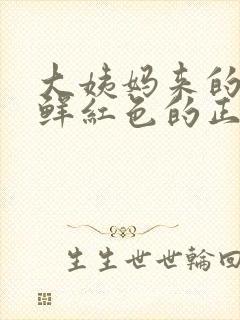 大姨妈来的
鲜红色的正
生生世世輪回